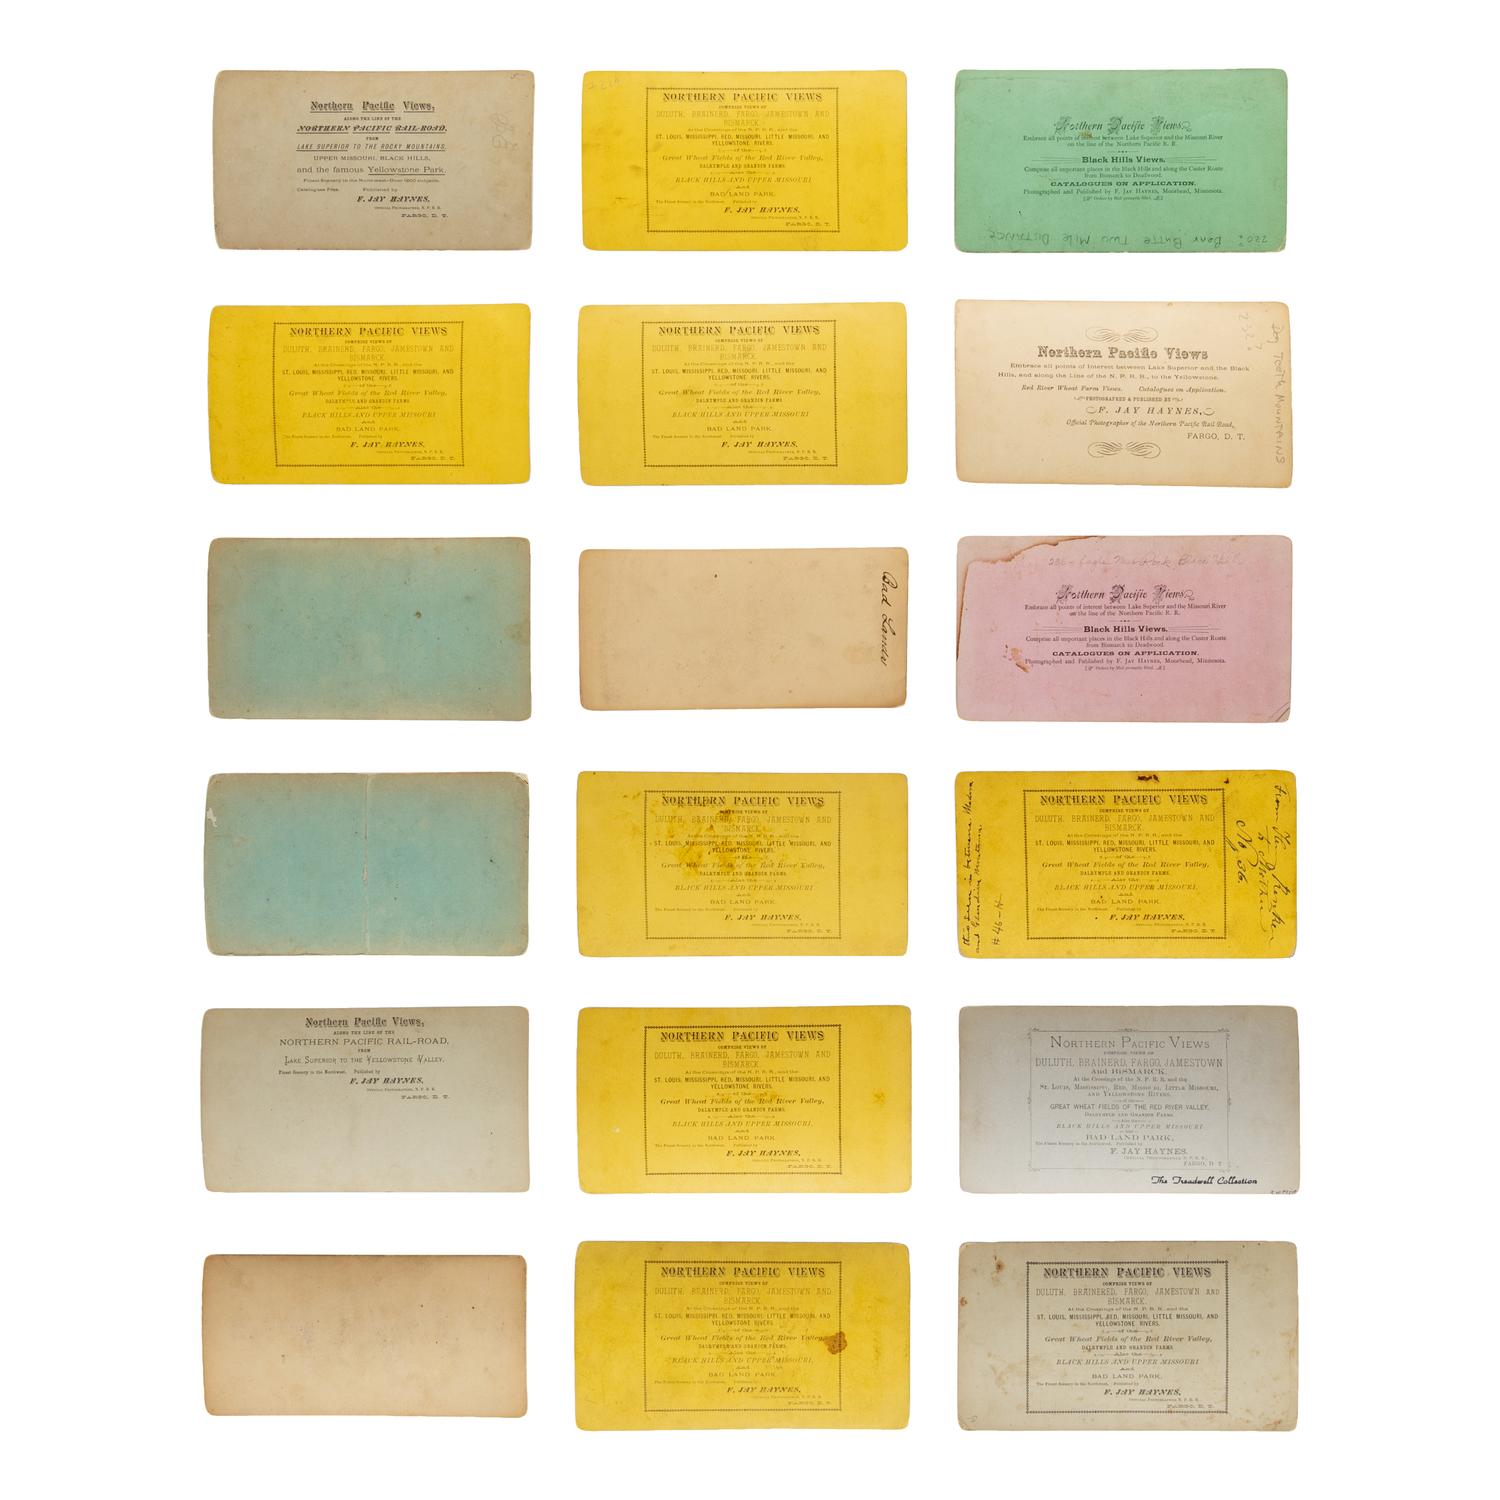 Northern Pacific Views,
ALONG THE LINE OF THE
NORTHERN PACIFIC RAIL-ROAD,
FROM
LAKE SUPERIOR TO THE ROCKY MOUNTAINS,
UPPER MISSOURI, BLACK HILLS,
and the famous Yellowstone Park.
Finest Scenery in the Northwest—Over 1200 subjects.
Catalogues Free. Published by
F. JAY HAYNES,
OFFICIAL PHOTOGRAPHER, N. P. R. R.
FARGO, D. T.
NORTHERN PACIFIC VIEWS
COMPRISE VIEWS OF
DULUTH, BRAINERD, FARGO, JAMESTOWN AND
BISMARCK.
At the Crossings of the N. P. R. R., and the
ST. LOUIS, MISSISSIPPI, RED, MISSOURI, LITTLE MISSOURI, AND
YELLOWSTONE RIVERS.
of the
Great Wheat Fields of the Red River Valley,
DALRYMPLE AND GRANDIN FARMS.
Also the
BLACK HILLS AND UPPER MISSOURI
and
BAD LAND PARK.
The Finest Scenery in the Northwest. Published by
F. JAY HAYNES,
OFFICIAL PHOTOGRAPHER, N. P. R. R.
FARGO, D. T.
Northern Pacific Views.
Embrace all points of interest between Lake Superior and the Missouri River
on the line of the Northern Pacific R. R.
Black Hills Views.
Comprise all important places in the Black Hills and along the Custer Route
from Bismarck to Deadwood.
CATALOGUES ON APPLICATION.
Photographed and Published by F. JAY HAYNES, Moorhead, Minnesota.
Orders by Mail promptly filled.
220 Bear Butte Two Mile DISTANCE
NORTHERN PACIFIC VIEWS
COMPRISE VIEWS OF
DULUTH, BRAINERD, FARGO, JAMESTOWN AND
BISMARCK.
At the Crossings of the N. P. R. R., and the
ST. LOUIS, MISSISSIPPI, RED, MISSOURI, LITTLE MISSOURI, AND
YELLOWSTONE RIVERS.
of the
Great Wheat Fields of the Red River Valley,
DALRYMPLE AND GRANDIN FARMS
Also the
BLACK HILLS AND UPPER MISSOURI
AND
BAD LAND PARK.
The Finest Scenery in the Northwest. Published by
F. JAY HAYNES,
OFFICIAL PHOTOGRAPHER, N. P. R. R.
FARGO, D. T.
NORTHERN PACIFIC VIEWS
COMPRISE VIEWS OF
DULUTH, BRAINERD, FARGO, JAMESTOWN AND
BISMARCK.
At the Crossings of the N. P. R. R., and the
ST. LOUIS, MISSISSIPPI, RED, MISSOURI, LITTLE MISSOURI, AND
YELLOWSTONE RIVERS.
of the
Great Wheat Fields of the Red River Valley,
DALRYMPLE AND GRANDIN FARMS
Also the
BLACK HILLS AND UPPER MISSOURI
AND
BAD LAND PARK.
The Finest Scenery in the Northwest. Published by
F. JAY HAYNES,
OFFICIAL PHOTOGRAPHER, N. P. R. R.
FARGO, D. T.
Northern Pacific Views
Embrace all points of Interest between Lake Superior and the Black
Hills, and along the Line of the N. P. R. R., to the Yellowstone.
Red River Wheat Farm Views. Catalogues on Application.
PHOTOGRAPHED & PUBLISHED BY
F. JAY HAYNES,
Official Photographer of the Northern Pacific Rail Road,
FARGO, D. T.
Dog TOOTH MOUNTAINS
Bad Lands
Northern Pacific Views.
Embrace all points of interest between Lake Superior and the Missouri River
on the line of the Northern Pacific R. R.
Black Hills Views.
Comprise all important places in the Black Hills and along the Custer Route
from Bismarck to Deadwood.
CATALOGUES ON APPLICATION.
Photographed and Published by F. JAY HAYNES, Moorhead, Minnesota.
Orders by Mail promptly filled.
NORTHERN PACIFIC VIEWS
COMPRISE VIEWS OF
DULUTH, BRAINERD, FARGO, JAMESTOWN AND
BISMARCK.
At the Crossings of the N. P. R. R., and the
ST. LOUIS, MISSISSIPPI, RED, MISSOURI, LITTLE MISSOURI, AND
YELLOWSTONE RIVERS.
of the
Great Wheat Fields of the Red River Valley,
DALRYMPLE AND GRANDIN FARMS.
Also the
BLACK HILLS AND UPPER MISSOURI
and
BAD LAND PARK.
The Finest Scenery in the Northwest. Published by
F. JAY HAYNES,
OFFICIAL PHOTOGRAPHER, N. P. R. R.
FARGO, D. T.
this scene is between Medora
and Glendive Montana.
#46-N
NORTHERN PACIFIC VIEWS
COMPRISE VIEWS OF
DULUTH, BRAINERD, FARGO, JAMESTOWN AND
BISMARCK.
At the Crossings of the N. P. R. R., and the
ST. LOUIS, MISSISSIPPI, RED, MISSOURI, LITTLE MISSOURI, AND
YELLOWSTONE RIVERS.
of the
Great Wheat Fields of the Red River Valley,
DALRYMPLE AND GRANDIN FARMS.
Also the
BLACK HILLS AND UPPER MISSOURI.
and
BAD LAND PARK.
The Finest Scenery in the Northwest. Published by
F. JAY HAYNES,
OFFICIAL PHOTOGRAPHER, N. P. R. R.
FARGO, D. T.
Northern Pacific Views,
ALONG THE LINE OF THE
NORTHERN PACIFIC RAIL-ROAD,
FROM
LAKE SUPERIOR TO THE YELLOWSTONE VALLEY,
Finest Scenery in the Northwest. Published by
F. JAY HAYNES,
OFFICIAL PHOTOGRAPHER, N. P. R. R.
FARGO, D. T.
NORTHERN PACIFIC VIEWS
COMPRISE VIEWS OF
DULUTH, BRAINERD, FARGO, JAMESTOWN AND
BISMARCK.
At the Crossings of the N. P. R. R., and the
ST. LOUIS, MISSISSIPPI, RED, MISSOURI, LITTLE MISSOURI, AND
YELLOWSTONE RIVERS.
of the
Great Wheat Fields of the Red River Valley,
DALRYMPLE AND GRANDIN FARMS.
Also the
BLACK HILLS AND UPPER MISSOURI.
and
BAD LAND PARK.
The Finest Scenery in the Northwest. Published by
F. JAY HAYNES,
OFFICIAL PHOTOGRAPHER, N. P. R. R.
FARGO, D. T.
NORTHERN PACIFIC VIEWS
COMPRISE VIEWS OF
DULUTH, BRAINERD, FARGO, JAMESTOWN
AND BISMARCK.
At the Crossings of the N. P. R. R. and the
ST. LOUIS, MISSISSIPPI, RED, MISSOURI, LITTLE MISSOURI,
AND YELLOWSTONE RIVERS.
of the
GREAT WHEAT FIELDS OF THE RED RIVER VALLEY,
DALRYMPLE AND GRANDIN FARMS
Also the
BLACK HILLS AND UPPER MISSOURI
and
BAD LAND PARK,
The Finest Scenery in the Northwest. Published by
F. JAY HAYNES.
OFFICIAL PHOTOGRAPHER N. P. R. R.,
FARGO, D. T.
The Treadwell Collection
NORTHERN PACIFIC VIEWS
COMPRISE VIEWS OF
DULUTH, BRAINERED, FARGO, JAMESTOWN AND
BISMARCK.
At the Crossings of the N. P. R. R., and the
ST. LOUIS, MISSISSIPPI, RED, MISSOURI, LITTLE MISSOURI, AND
YELLOWSTONE RIVERS.
of the
Great Wheat Fields of the Red River Valley,
DALRYMPLE AND GRANDIN FARMS.
Also the
BLACK HILLS AND UPPER MISSOURI,
and
BAD LAND PARK,
The Finest Scenery in the Northwest. Published by
F. JAY HAYNES,
OFFICIAL PHOTOGRAPHER, N. P. R. R.
FARGO, D. T.
NORTHERN PACIFIC VIEWS
COMPRISE VIEWS OF
DULUTH, BRAINERED, FARGO, JAMESTOWN AND
BISMARCK.
At the Crossings of the N. P. R. R., and the
ST. LOUIS, MISSISSIPPI, RED, MISSOURI, LITTLE MISSOURI, AND
YELLOWSTONE RIVERS.
of the
Great Wheat Fields of the Red River Valley,
DALRYMPLE AND GRANDIN FARMS.
Also the
BLACK HILLS AND UPPER MISSOURI
and
BAD LAND PARK.
The Finest Scenery in the Northwest. Published by
F. JAY HAYNES,
OFFICIAL PHOTOGRAPHER, N. P. R. R.
FARGO, D. T.